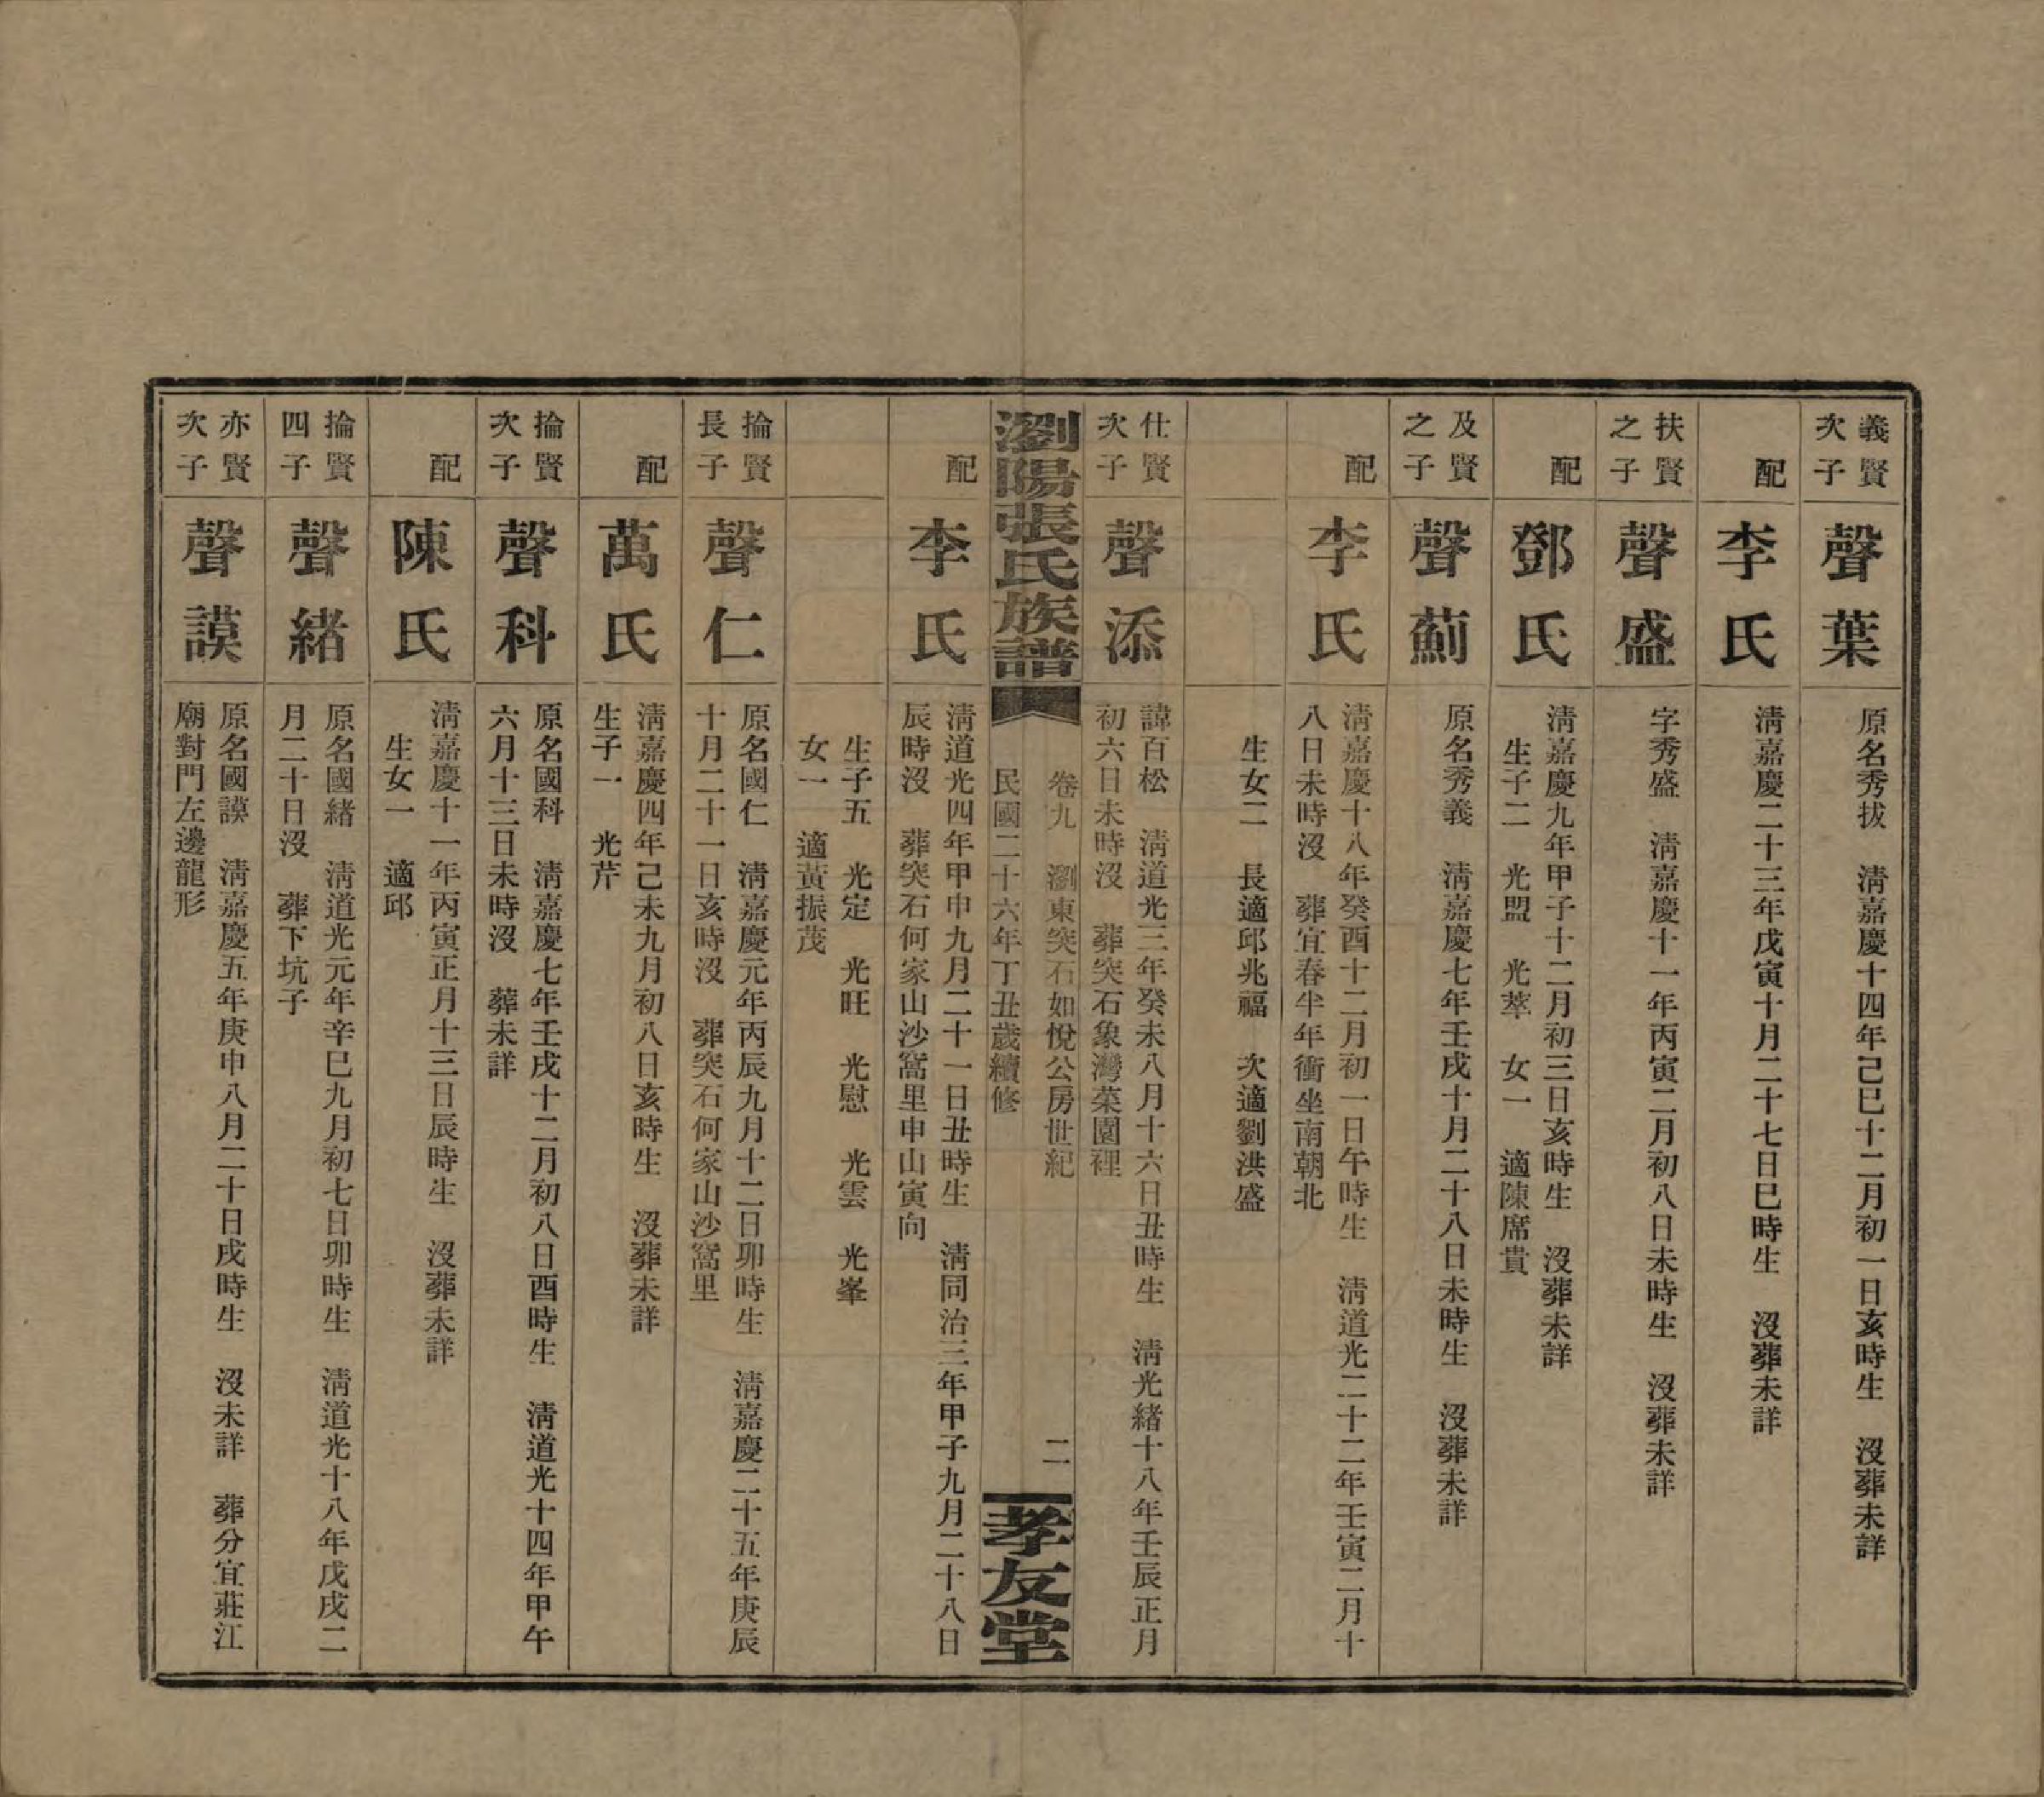 義賢
次子
聲葉
原名秀拔　淸嘉慶十四年己巳十二月初一日亥時生　沒葬未詳
配
李氏
淸嘉慶二十三年戊寅十月二十七日巳時生　沒葬未詳
扶賢
之子
聲盛
字秀盛　淸嘉慶十一年丙寅二月初八日未時生　沒葬未詳
配
鄧氏
淸嘉慶九年甲子十二月初三日亥時生　沒葬未詳
生子二　光盟　光萃　女一　適陳席貴
及賢
之子
聲薊
原名秀義　淸嘉慶七年壬戌十月二十八日未時生　沒葬未詳
配
李氏
淸嘉慶十八年癸酉十二月初一日午時生　淸道光二十二年壬寅二月十
八日未時沒　葬宜春半年衝坐南朝北
生女二　長適邱兆福　次適劉洪盛
仕賢
次子
聲添
諱百松　淸道光三年癸未八月十六日丑時生　淸光緒十八年壬辰正月
初六日未時沒　葬突石象灣菜園裡
瀏陽張氏族譜
卷九　瀏東突石如悅公房世紀
二
民國二十六年丁丑歲續修
孝友堂
配
李氏
淸道光四年甲申九月二十一日丑時生　淸同治三年甲子九月二十八日
辰時沒　葬突石何家山沙窩里申山寅向
生子五　光定　光旺　光慰　光雲　光峯
女一　適黃振茂
掄賢
長子
聲仁
原名國仁　淸嘉慶元年丙辰九月十二日卯時生　淸嘉慶二十五年庚辰
十月二十一日亥時沒　葬突石何家山沙窩里
配
萬氏
淸嘉慶四年己未九月初八日亥時生　沒葬未詳
生子一　光芹
掄賢
次子
聲科
原名國科　淸嘉慶七年壬戌十二月初八日酉時生　淸道光十四年甲午
六月十三日未時沒　葬未詳
配
陳氏
淸嘉慶十一年丙寅正月十三日辰時生　沒葬未詳
生女一　適邱
掄賢
四子
聲緒
原名國緒　淸道光元年辛巳九月初七日卯時生　淸道光十八年戊戌二
月二十日沒　葬下坑子
亦賢
次子
聲謨
原名國謨　淸嘉慶五年庚申八月二十日戌時生　沒未詳　葬分宜莊江
廟對門左邊龍形